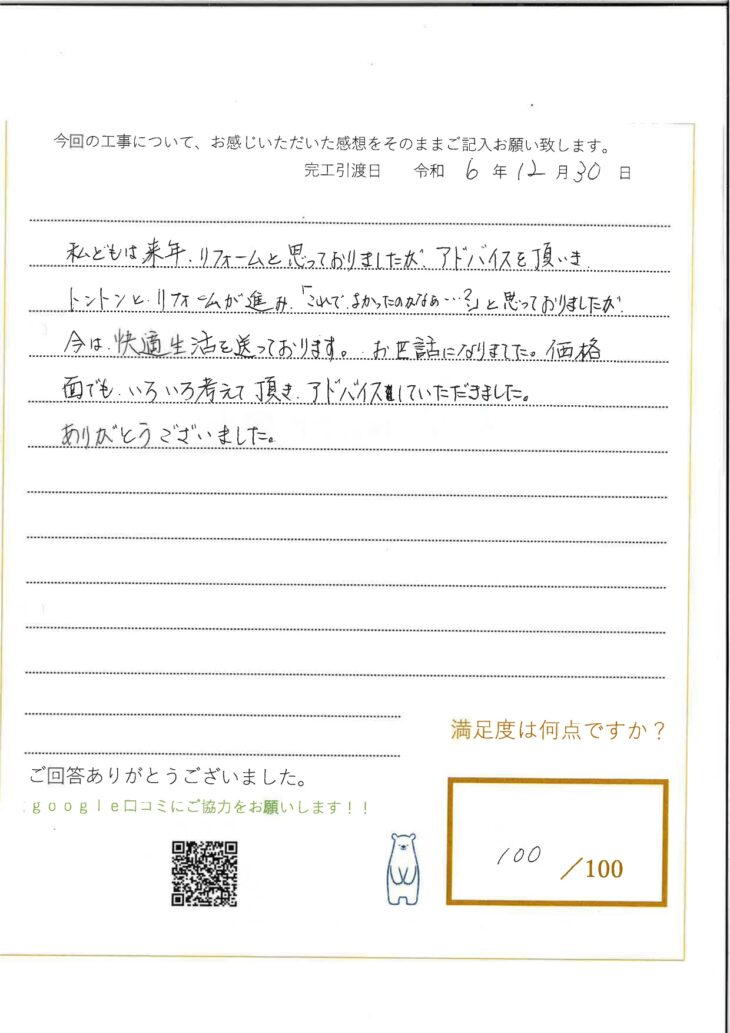 今回の工事について、お感じいただいた感想をそのままご記入お願い致します。
完工引渡日 令和 6 年 12 月 30 日
私どもは来年、リフォームと思っておりましたが、アドバイスを頂いき、
トントンと、リフォームが進み、「これで、よかったのかなぁ…?」と思っておりましたが、
今は、快適生活を送っております。お世話になりました。価格
面でも、いろいろ考えて頂き、アドバイスしていただきました。
ありがとうございました。
満足度は何点ですか？
ご回答ありがとうございました。
google口コミにご協力をお願いします！！
100 ／100